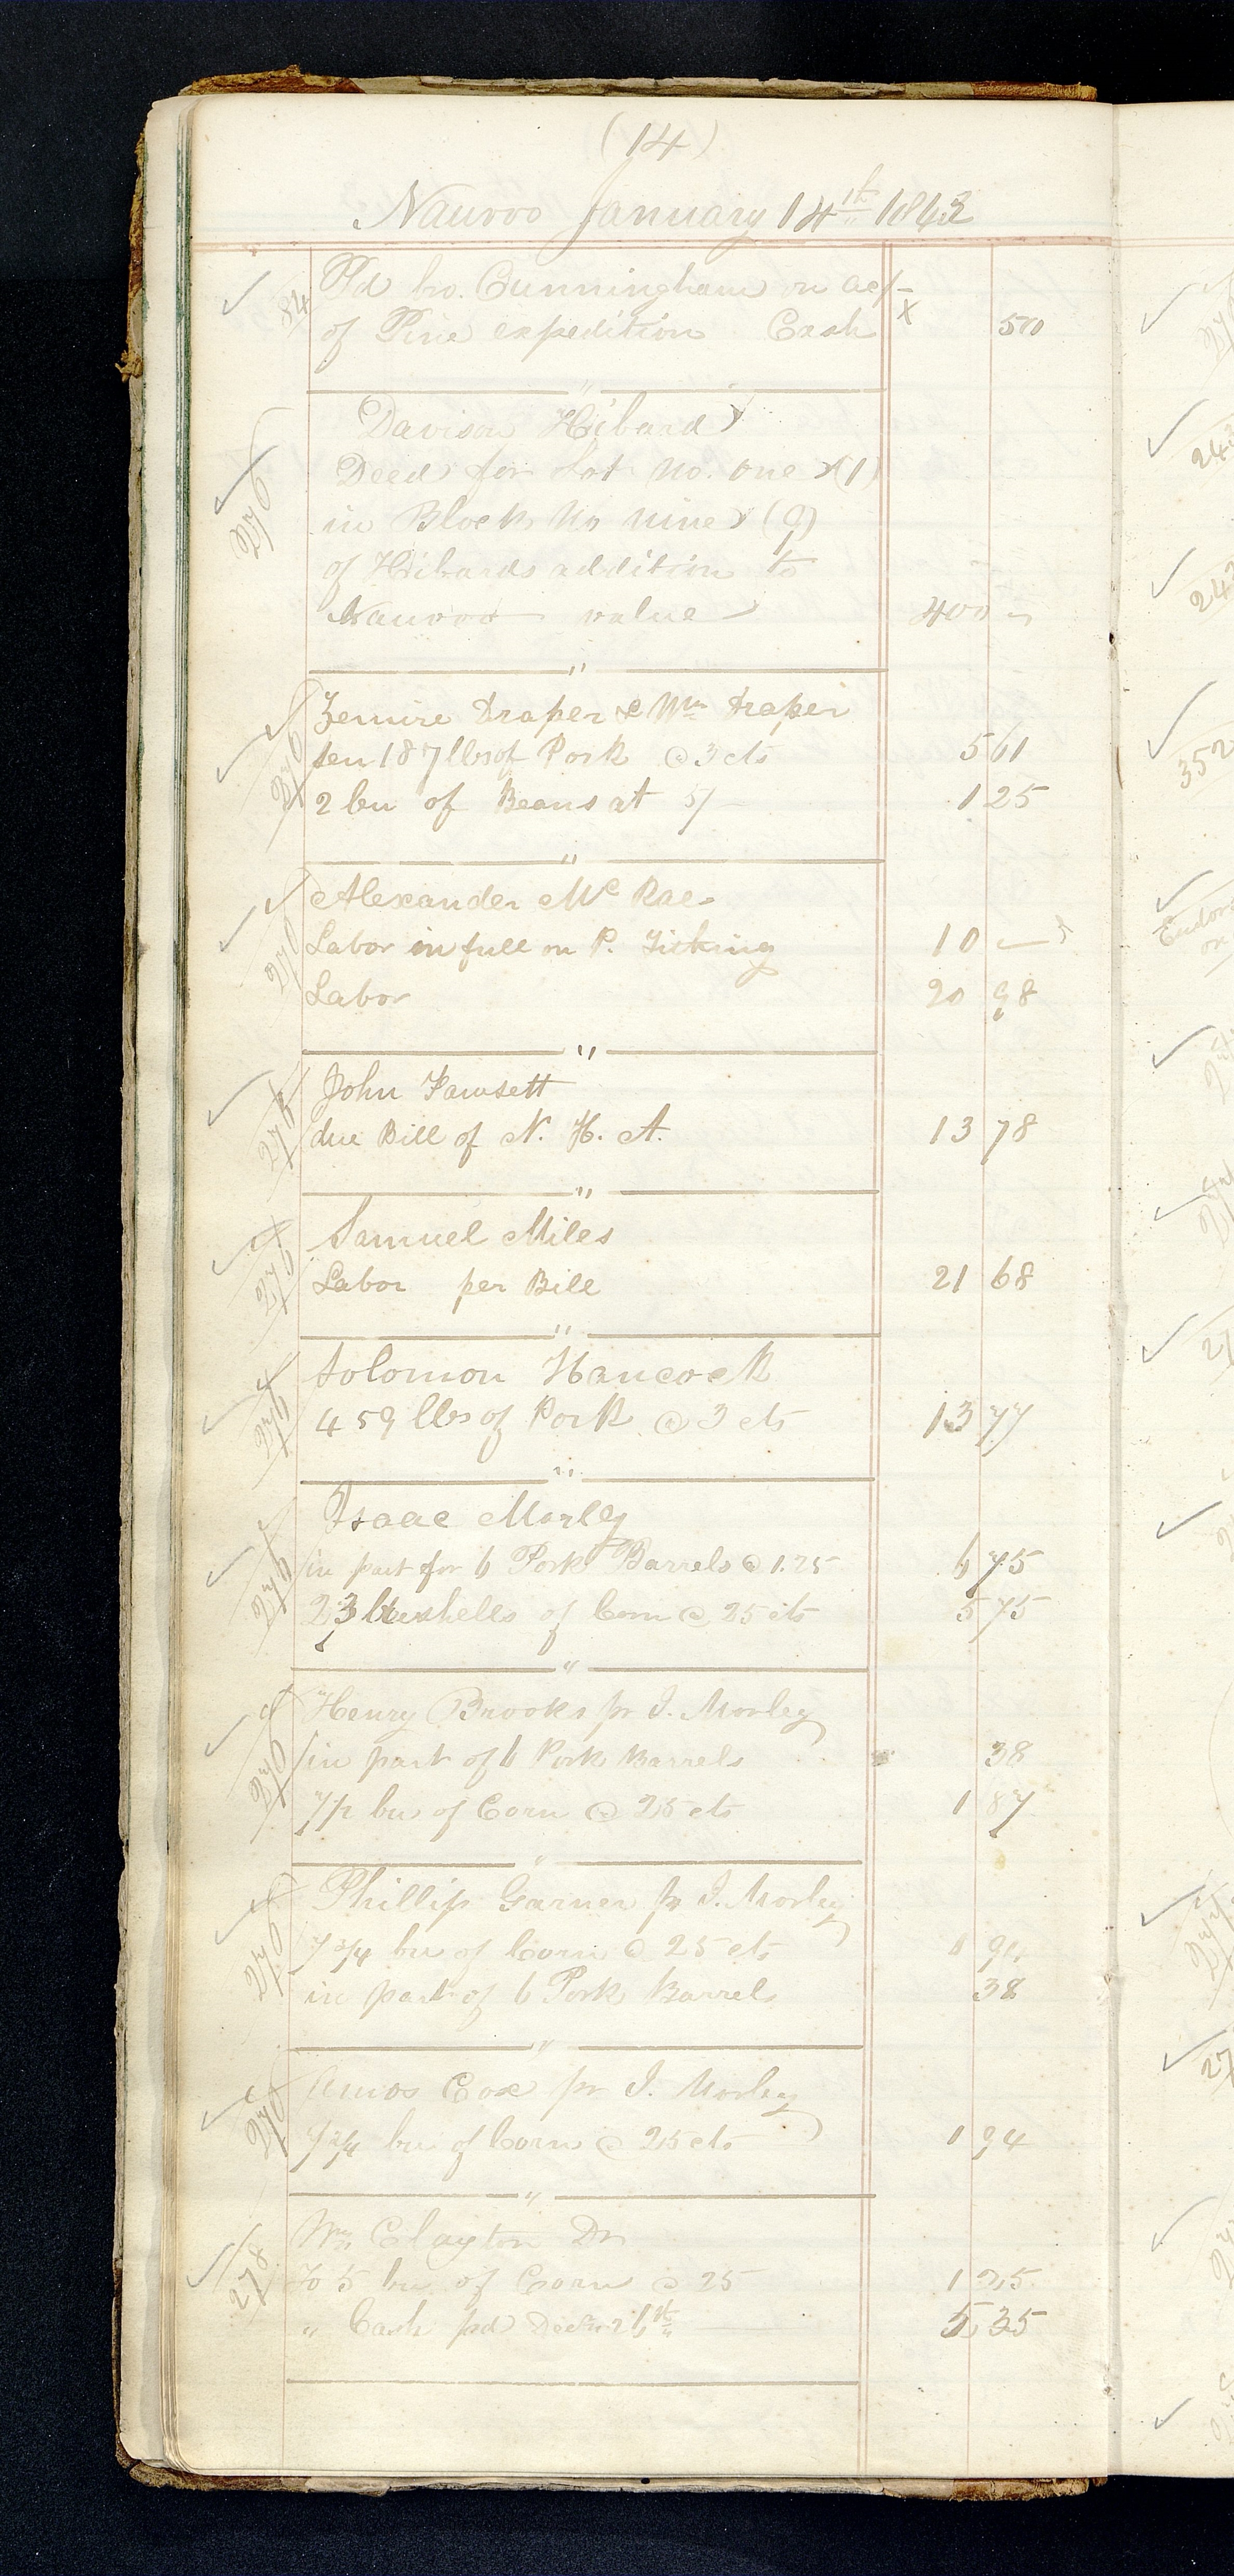 (14)
Nauvoo January 14th 1843
84 Pd bro. Cunningham on ac/-
of Pine expedition Cash x 50
"
Davison Hibard
Deed for Lot No. one (1)
276 in Block No nine (9)
of Hibards addition to
Nauvoo value 400 -
"
Zemire Draper & Wm Draper
276 ten 187 lbs of Pork @ 3 cts 5 61
2 bu of Beans at 5/- 1 25
"
Alexander Mc Rae
276 Labor in full on P. Ticking 10 -
Labor 20 98
"
John Fawsett
276 due Bill of N. H. A. 13 78
"
Samuel Miles
276 Labor per Bill 21 68
"
Solomon Hancock
276 459 lbs of Pork @ 3 cts 13 77
"
Isaac Morley
276 in part for 6 Pork Barrels @ 1.25 6 75
23 bushells of Corn @ 25 cts 5 75
"
Henry Brooks pr I. Morley
276 in part of 6 Pork Barrels 38
7 1/2 bu of Corn @ 25 cts 1 87
"
Phillip Garner pr I. Morley
276 7 3/4 bu of Corn @ 25 cts 1 94
in part of 6 Pork Barrels 38
"
Amos Cox pr I. Morley
276 7 3/4 bu of Corn @ 25 cts 1 94
"
Wm Clayton Dr
278 To 5 bu of Corn @ 25 1 25
" Cash pd Decr 21st 5 35